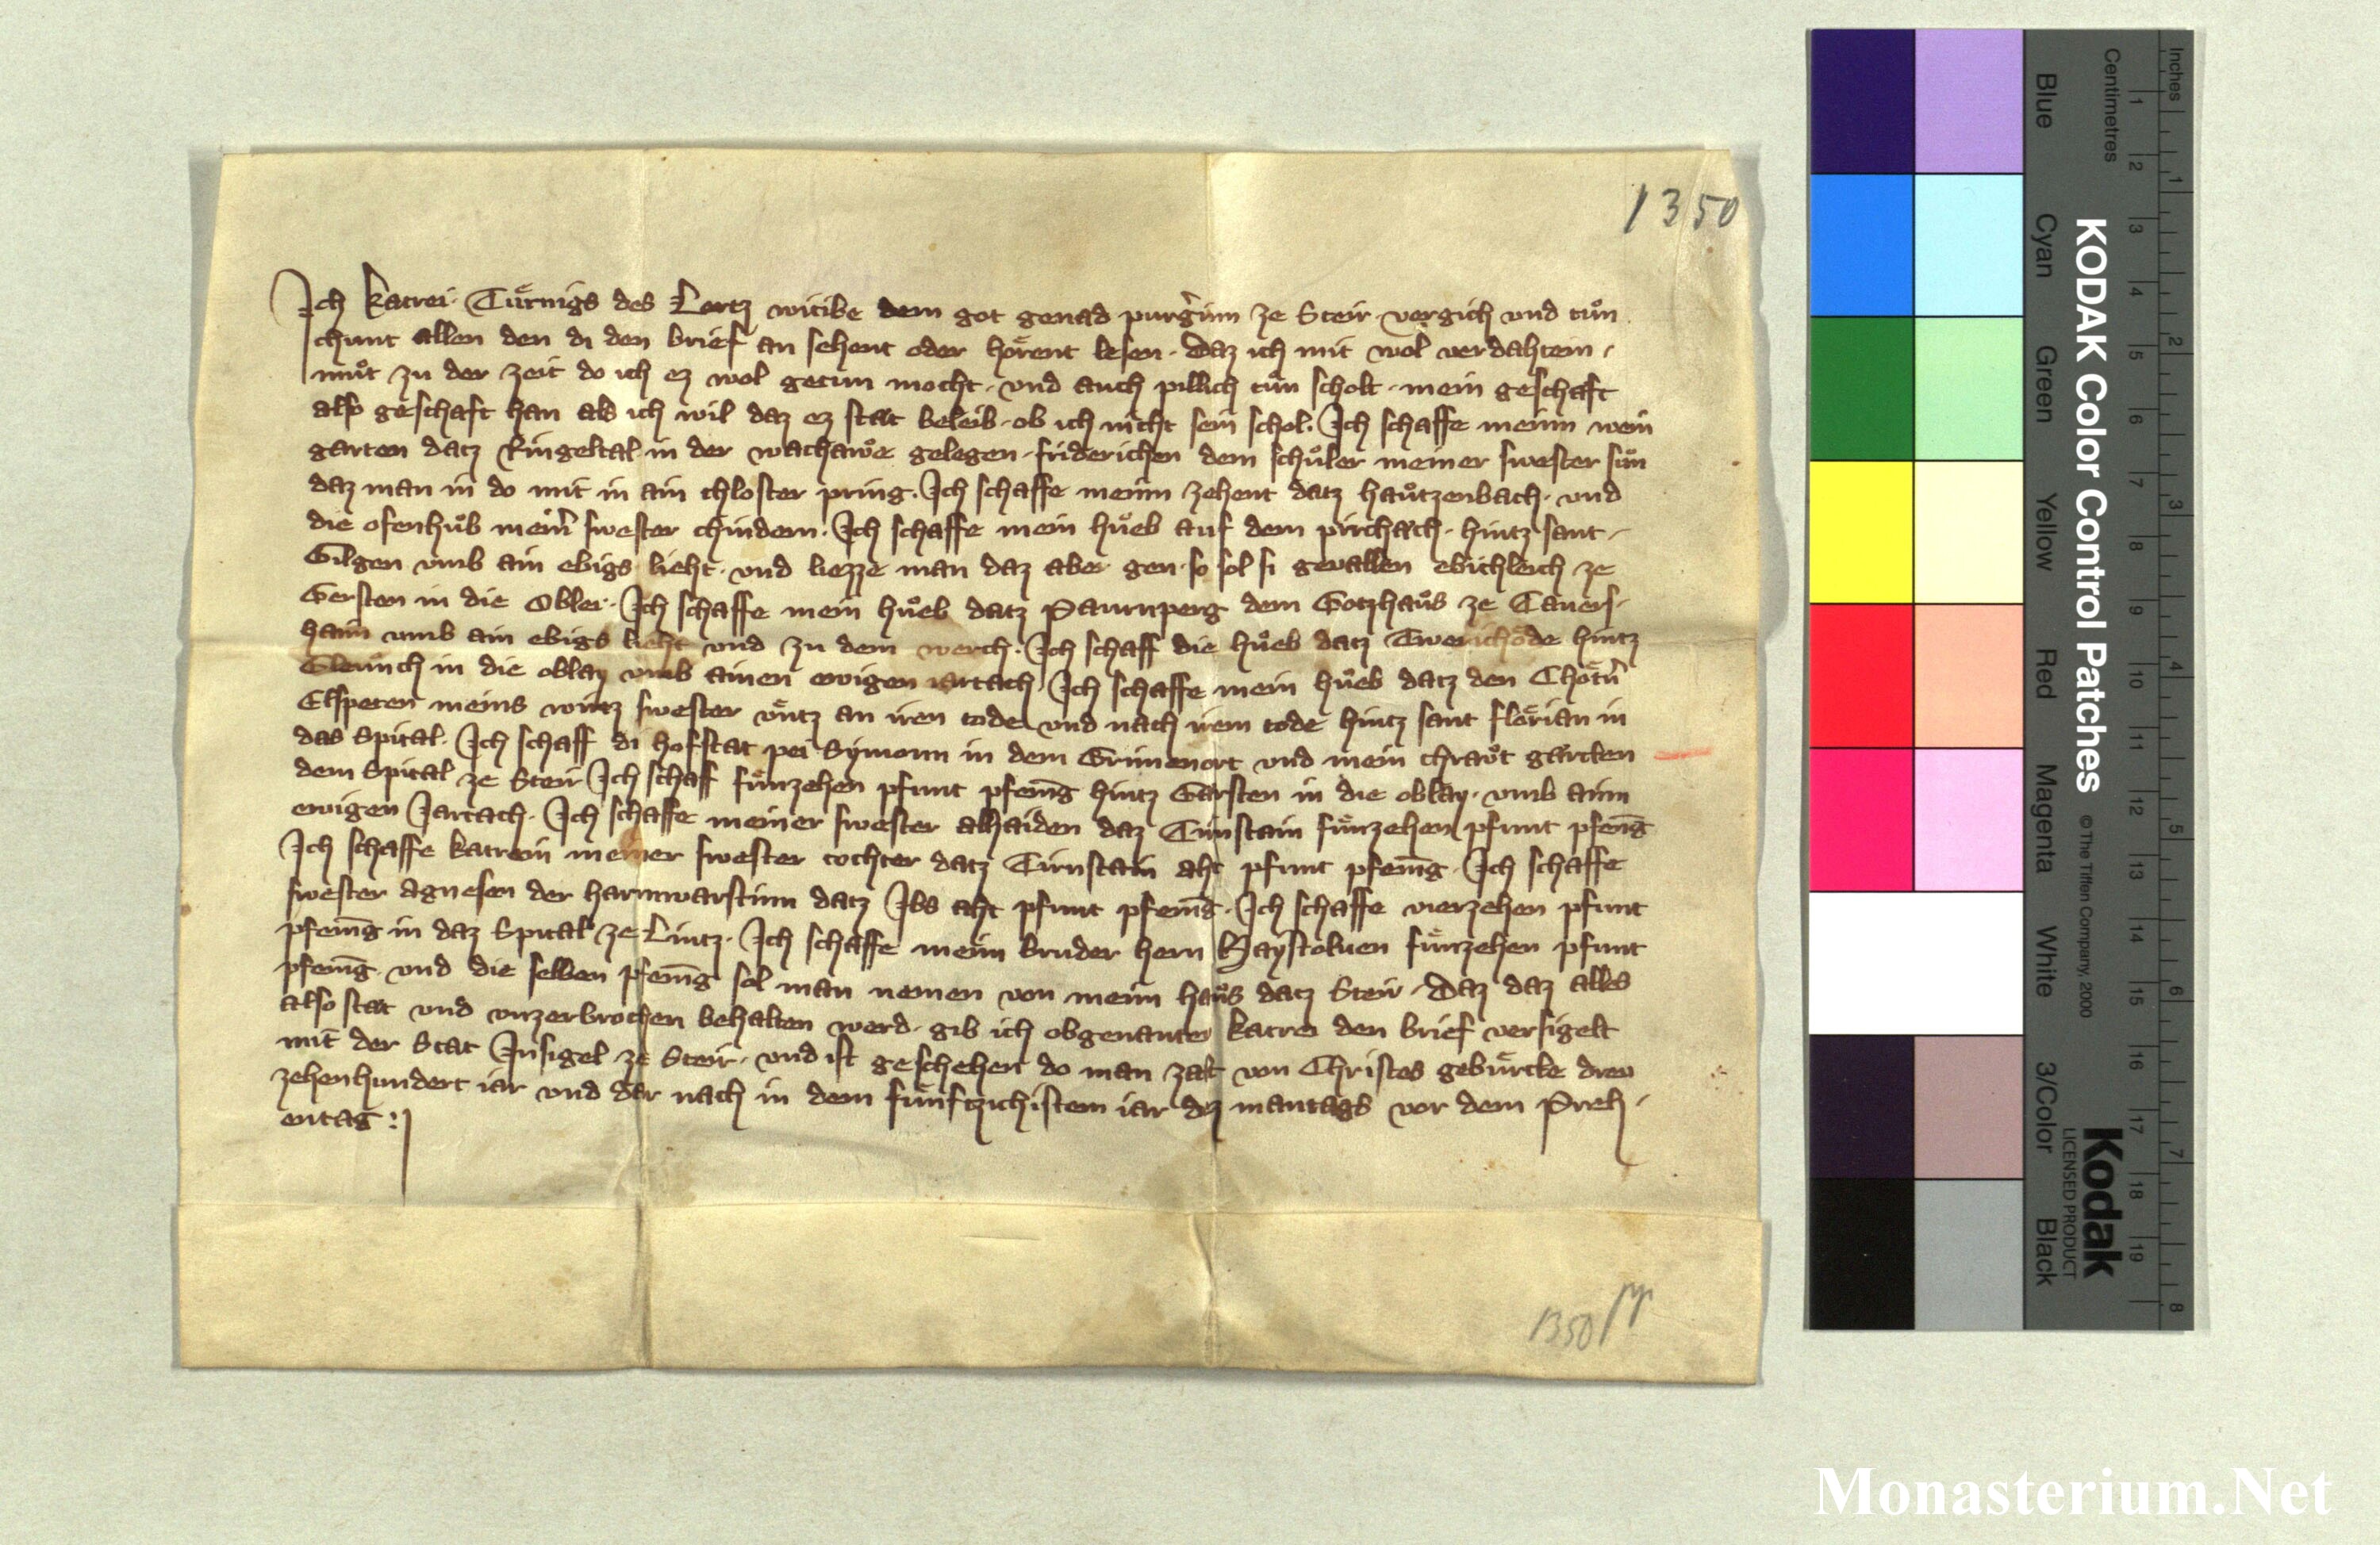 1350
Ich katrei Tuͤrnigs des Lertz witibe dem got genad purg̃inn ze Steir vergich vnd tuͦn
chunt allen den di den brief an sehent oder hoͤrent lesen · Daz ich mit wol verdahtem
muͦt zu der zeit do ich ez wol getun mocht · vnd auch pillich tuͦn scholt · mein geschaft
also geschaft han als ich wil daz ez stat beleib · ob ich nicht sein schol · Ich schaffe meinn wein
garten datz Ringeltal in der wachawͦe gelegen · friderichen dem schuͦler meiner swester suͦn
daz man in do mit in ain chloster pring · Ich schaffe meinn zehent datz hauͦtzenbach · vnd
die ofenhuͦb mein̄ swester chindern · Ich schaffe mein huͦeb auf dem pirchach · hintz sant
Gilgen vmb ain ebigs lieht · vnd liezze man daz aber gen · so sol si geuallen ebichleich ze
Gersten in die Oblei · Ich schaffe mein huͦeb datz Paurnperg dem Gotzhauͦs ze Tauers
haim vmb ain ebigs lieht vnd zu dem werch · Ich schaff die huͦeb datz Twerichoͤde hintz
Gleuͦnch in die oblay vmb ainen ewigen iartach Ich schaffe mein huͦeb datz den Choͤtn̄
Elspeten meins wirtz swester vͤntz an iren tode vnd nach irem tode hintz sant floͤrian in
das Spital · Ich schaff di hofstat pei Symonn in dem Grunenort vnd mein chrawͦt gaͤrtten
dem Spital ze Steir Ich schaff fuͤnzehen pfunt pfenīg hintz Gaͤrsten in die oblay · vmb ainn
ewigen Jartach · Ich schaffe meiner swester alhaiden daz Tirnstain fuͤnzehen pfunt pfenīg
Ich schaffe katrein meiner swester tochter datz Tirnstain aht pfunt pfenīg · Ich schaffe
swester Agnesen der harmwarstinn datz Ibs aht pfunt pfenīg · Ich schaffe vierzehen pfunt
pfenīg in daz Spital ze Lintz · Ich schaffe meinn bruder hern Haystoluen fuͤnzehen pfunt
pfenīg · vnd die selben pfenīg sol man nemen von meinn hauͦs datz Steir · Daz daz alles
also stat vnd vnzerbrochen behalten werd · gib ich obgenantev katrei den brief versigelt
mit der Stat Insigel ze Steir · vnd ist geschehen do man zalt von Christes gebuͤrtte drev
zehenhundert iar vnd dar nach in dem fuͤnftzichistem iar dez mantags vor dem Preh
entag :
1350
KODAK Color Control Patches
© The Tiffen Company, 2000
Kodak
LICENSED PRODUCT
Blue
Cyan
Green
Yellow
Red
Magenta
White
3/Color
Black
Inches
1
2
3
4
5
6
7
8
Centimetres
1
2
3
4
5
6
7
8
9
10
11
12
13
14
15
16
17
18
19
Monasterium.Net